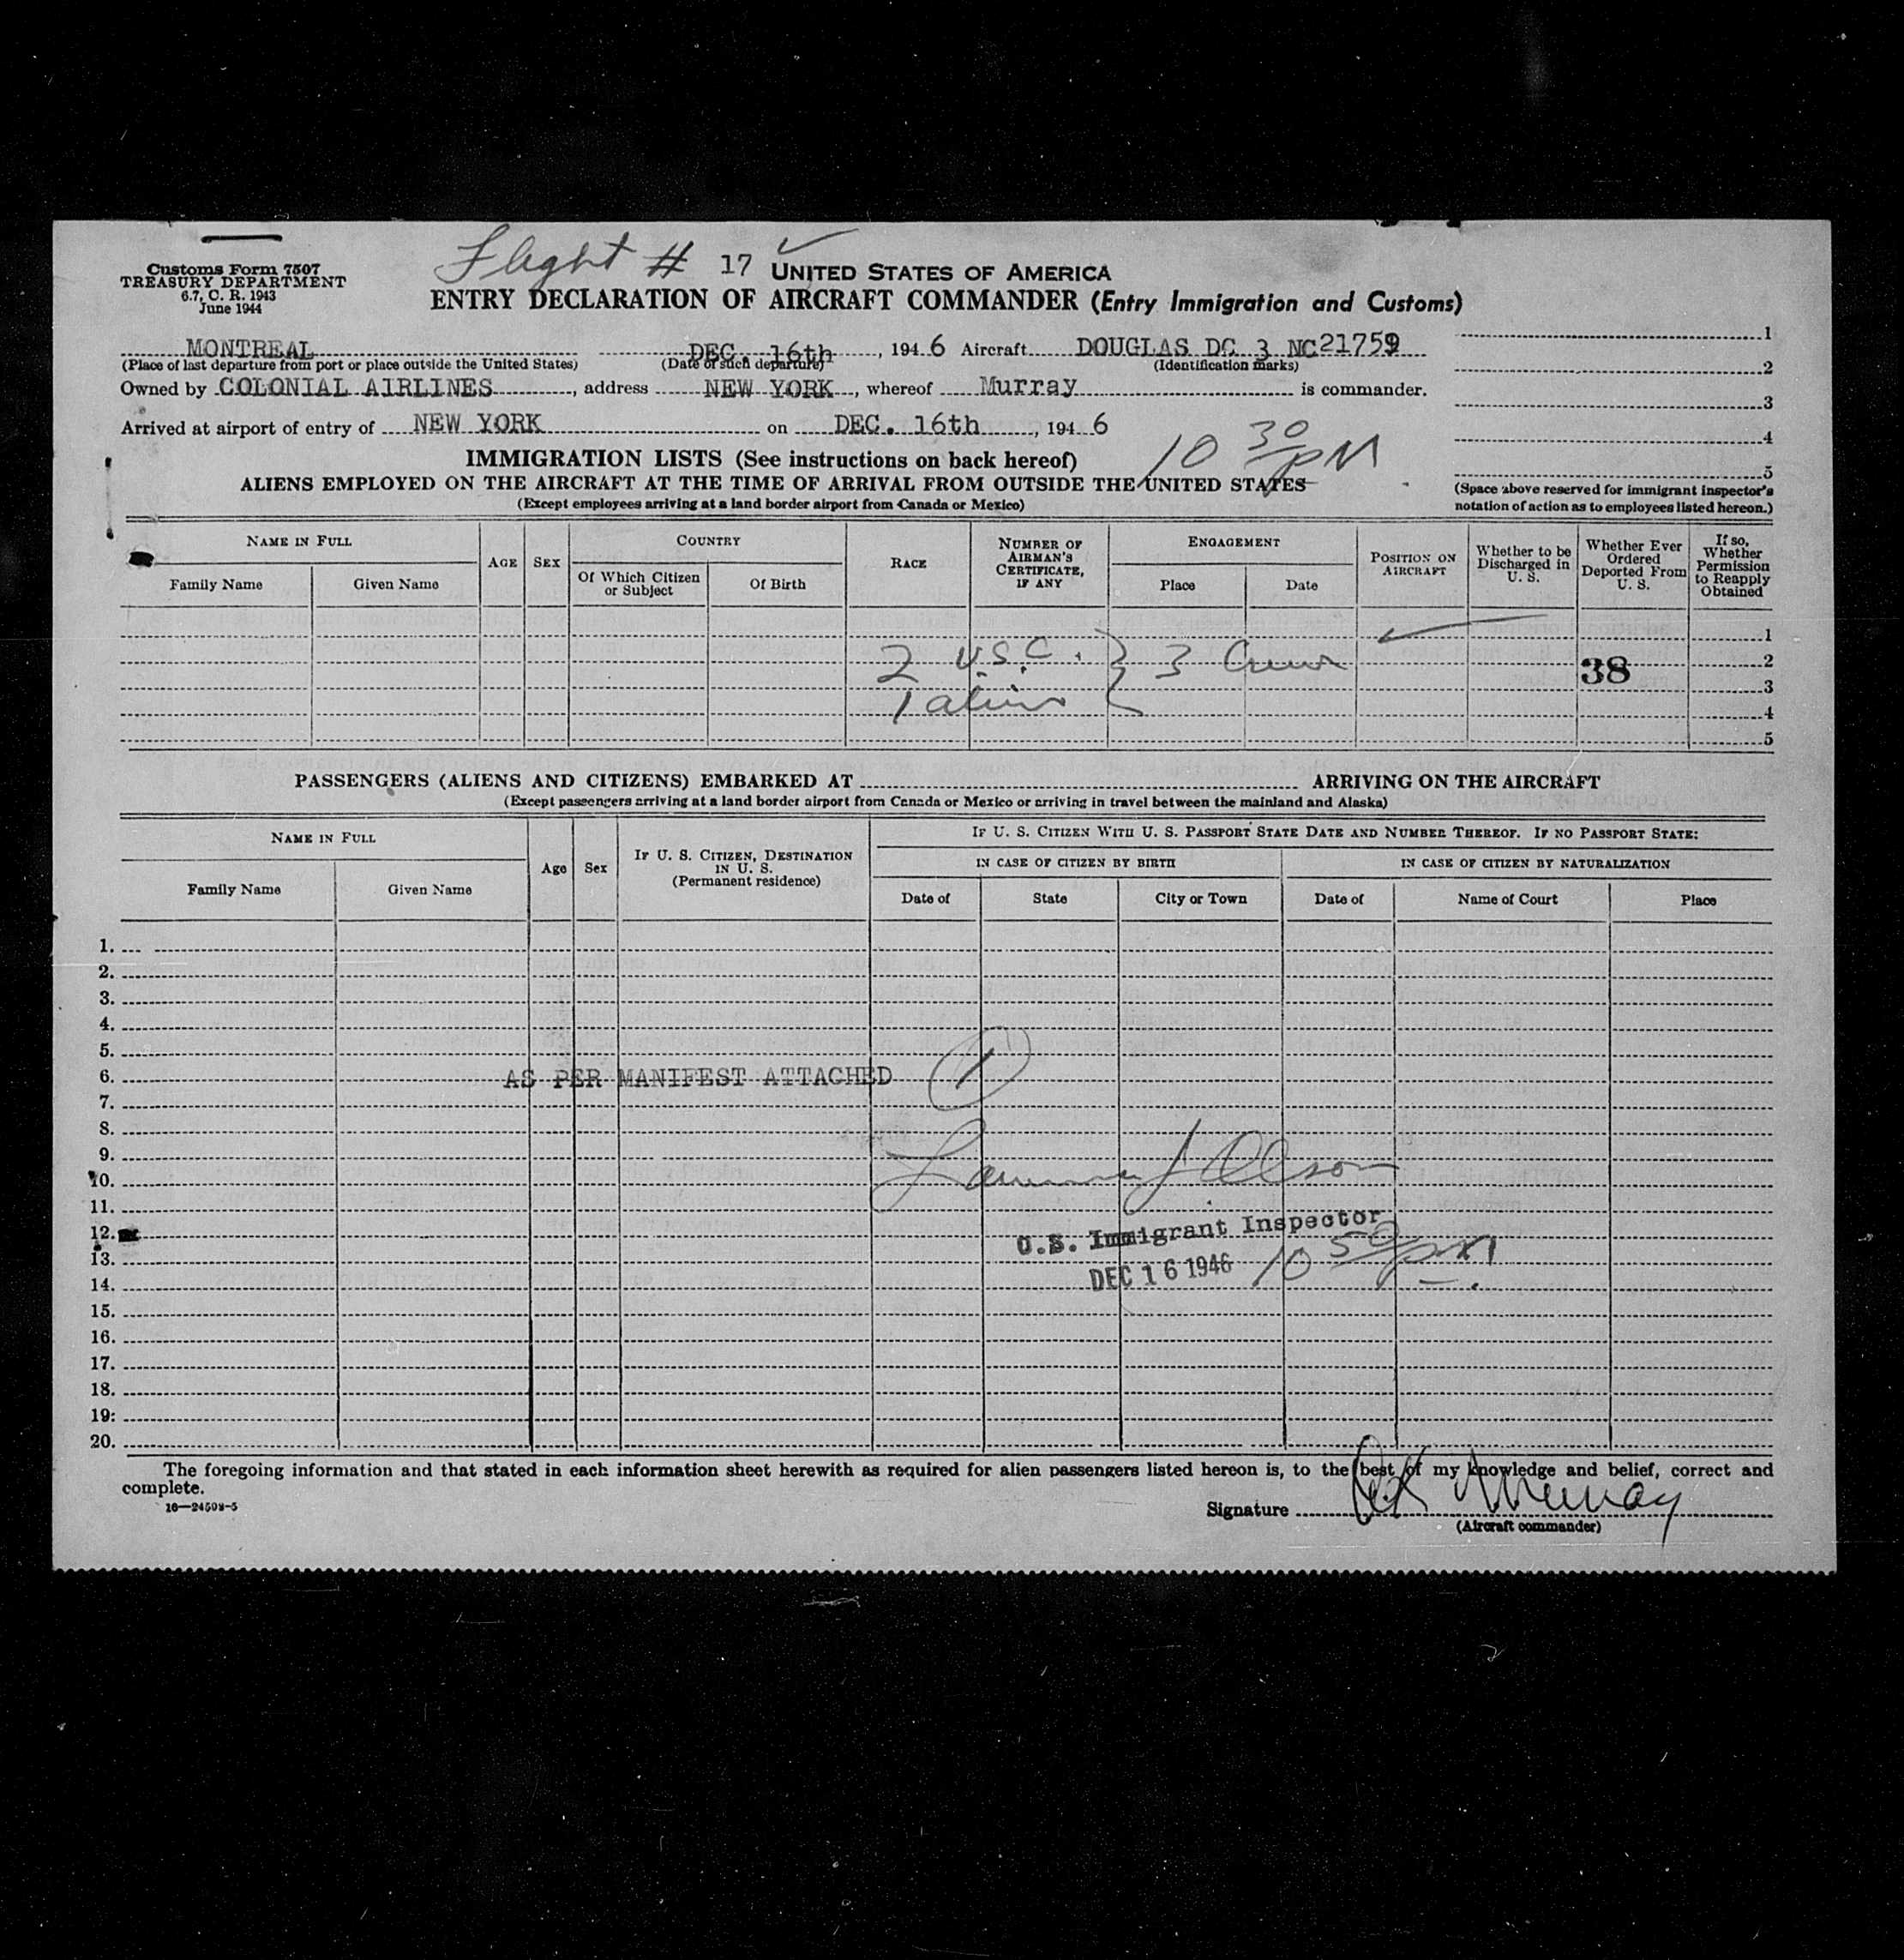 Flight # 17
Customs Form 7507
TREASURY DEPARTMENT
6.7, C. R. 1943
June 1944
UNITED STATES OF AMERICA
ENTRY DECLARATION OF AIRCRAFT COMMANDER (Entry Immigration and Customs)
MONTREAL DEC. 16th, 194 6 Aircraft DOUGLAS DC 3 NC21759
(Place of last departure from port or place outside the United States) (Date of such departure) (Identification marks)
Owned by COLONIAL AIRLINES, address NEW YORK, whereof Murray is commander.
Arrived at airport of entry of NEW YORK on DEC. 16th, 194 6
10 30 PM
1
2
3
4
5
(Space above reserved for immigrant inspector's notation of action as to employees listed hereon.)
IMMIGRATION LISTS (See instructions on back hereof)
ALIENS EMPLOYED ON THE AIRCRAFT AT THE TIME OF ARRIVAL FROM OUTSIDE THE UNITED STATES
(Except employees arriving at a land border airport from Canada or Mexico)
NAME IN FULL
Family Name Given Name
AGE SEX
COUNTRY
Of Which Citizen or Subject Of Birth
RACE
NUMBER OF AIRMAN'S CERTIFICATE, IF ANY
ENGAGEMENT
Place Date
POSITION ON AIRCRAFT
Whether to be Discharged in U. S.
Whether Ever Ordered Deported From U. S.
If so, Whether Permission to Reapply Obtained
1
2 U.S.C. } 3 Crew 38 2
1 alien 3
4
5
PASSENGERS (ALIENS AND CITIZENS) EMBARKED AT ARRIVING ON THE AIRCRAFT
(Except passengers arriving at a land border airport from Canada or Mexico or arriving in travel between the mainland and Alaska)
NAME IN FULL
Family Name Given Name
Age Sex
IF U. S. CITIZEN, DESTINATION IN U. S.
(Permanent residence)
IF U. S. CITIZEN WITH U. S. PASSPORT STATE DATE AND NUMBER THEREOF. IF NO PASSPORT STATE:
IN CASE OF CITIZEN BY BIRTH IN CASE OF CITIZEN BY NATURALIZATION
Date of State City or Town Date of Name of Court Place
1.
2.
3.
4.
5.
6. AS PER MANIFEST ATTACHED 1
7.
8.
9.
10. J Olson
11.
12. U.S. Immigrant Inspector
13. DEC 16 1946 10 50 pm
14.
15.
16.
17.
18.
19.
20.
The foregoing information and that stated in each information sheet herewith as required for alien passengers listed hereon is, to the best of my knowledge and belief, correct and
complete.
16—24598-5
Signature Murray
(Aircraft commander)